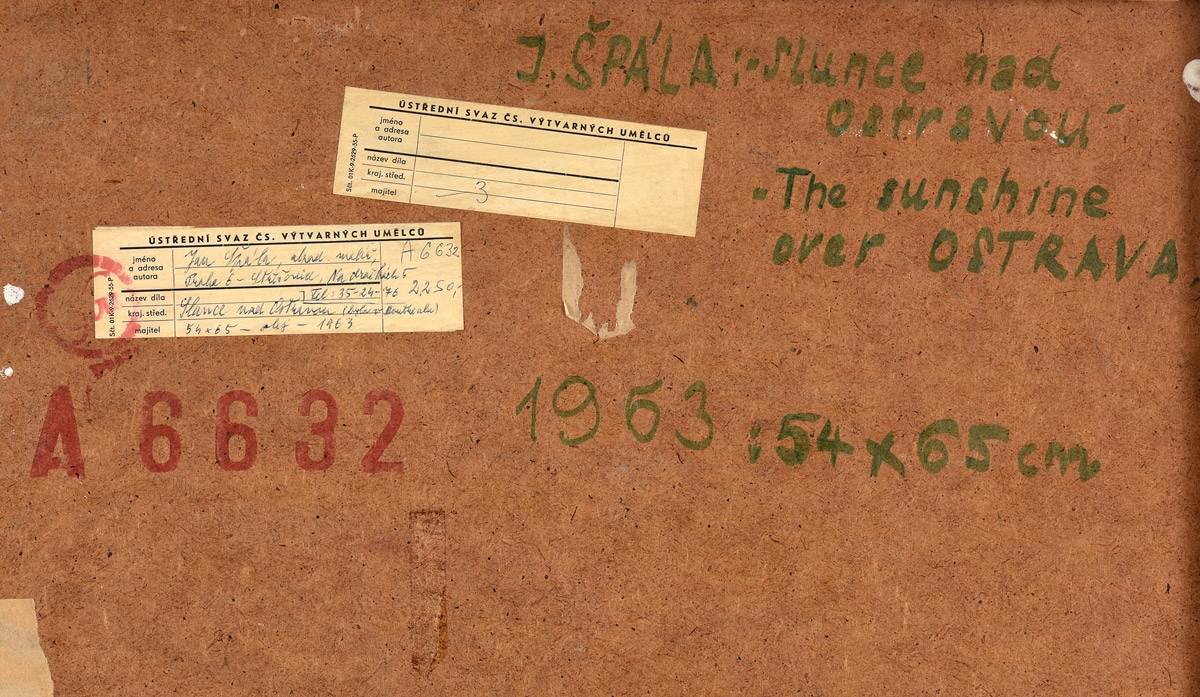 J. ŠPÁLA: "Slunce nad
Ostravou"
"The sunshine
over OSTRAVA
ÚSTŘEDNÍ SVAZ ČS. VÝTVARNÝCH UMĚLCŮ
jméno
a adresa
autora
název díla
kraj. střed.
majitel
3
Sčt. 01K-9-2629-55-P
ÚSTŘEDNÍ SVAZ ČS. VÝTVARNÝCH UMĚLCŮ
jméno
a adresa
autora
Jan Špála, akad. malíř, A 6632
Praha 6 - Střešovice, Na dračkách 5
název díla
Tel: 35-24-76 2250,-
kraj. střed.
Slunce nad Ostravou
majitel
54x65 - olej - 1963
Sčt. 01K-9-2629-55-P
A 6632
1963 : 54 x 65 cm